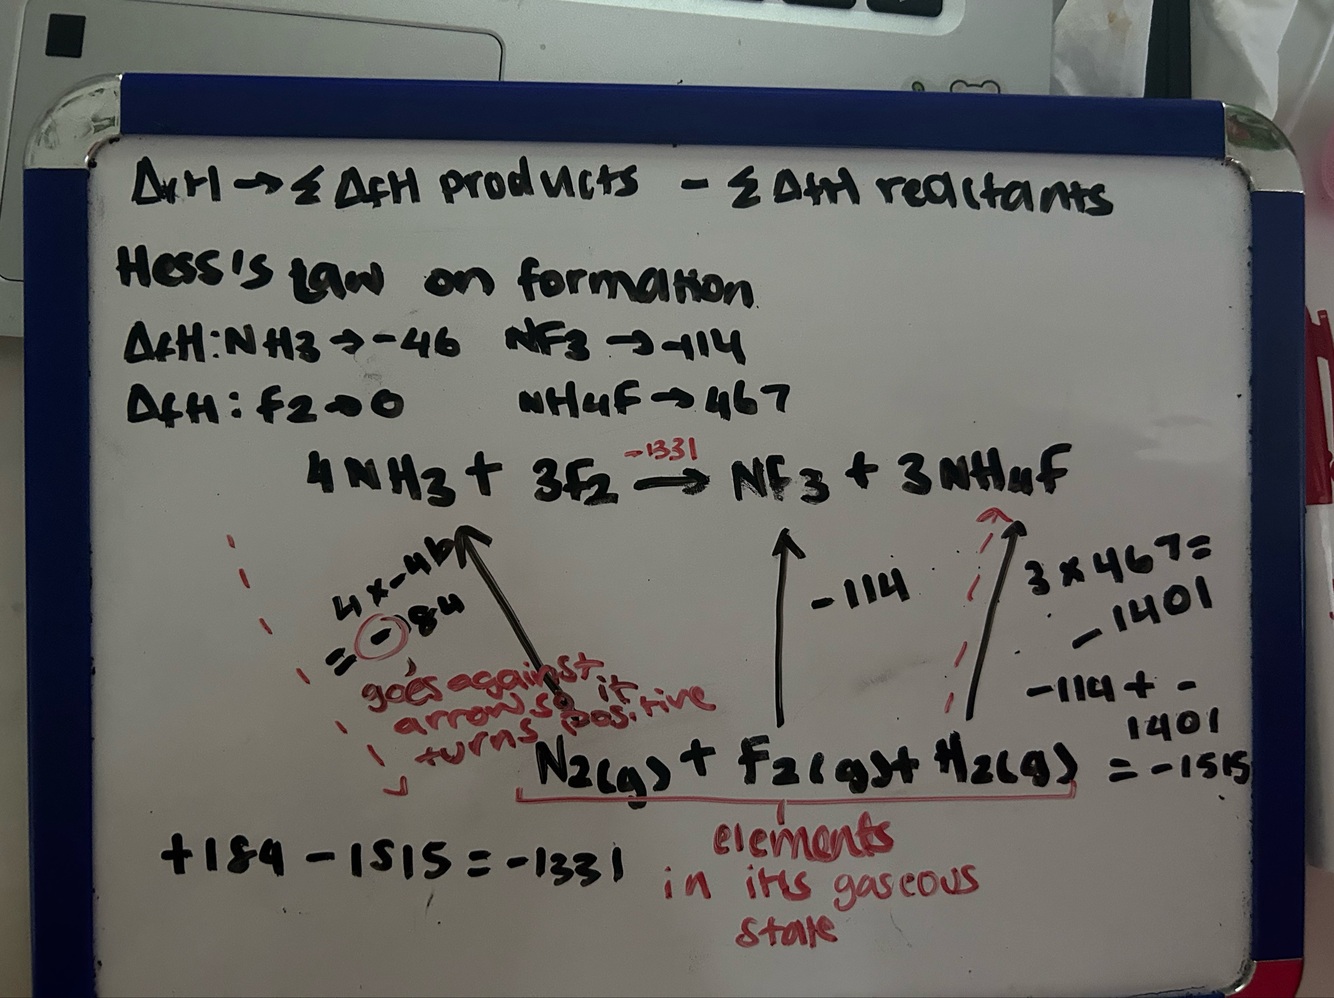 ΔrH → Σ ΔfH products - Σ ΔfH reactants
Hess's Law on formation
ΔfH: NH3 → -46 NF3 → -114
ΔfH: F2 → 0 NH4F → 467
-1331
4NH3 + 3F2 → NF3 + 3NH4F
4 x -46
= - 184
goes against
arrow so it
turns positive
-114
3 x 467 =
- 1401
-114 + -
1401
= -1515
N2(g) + F2(g) + H2(g)
+184 - 1515 = -1331
elements
in its gaseous
state